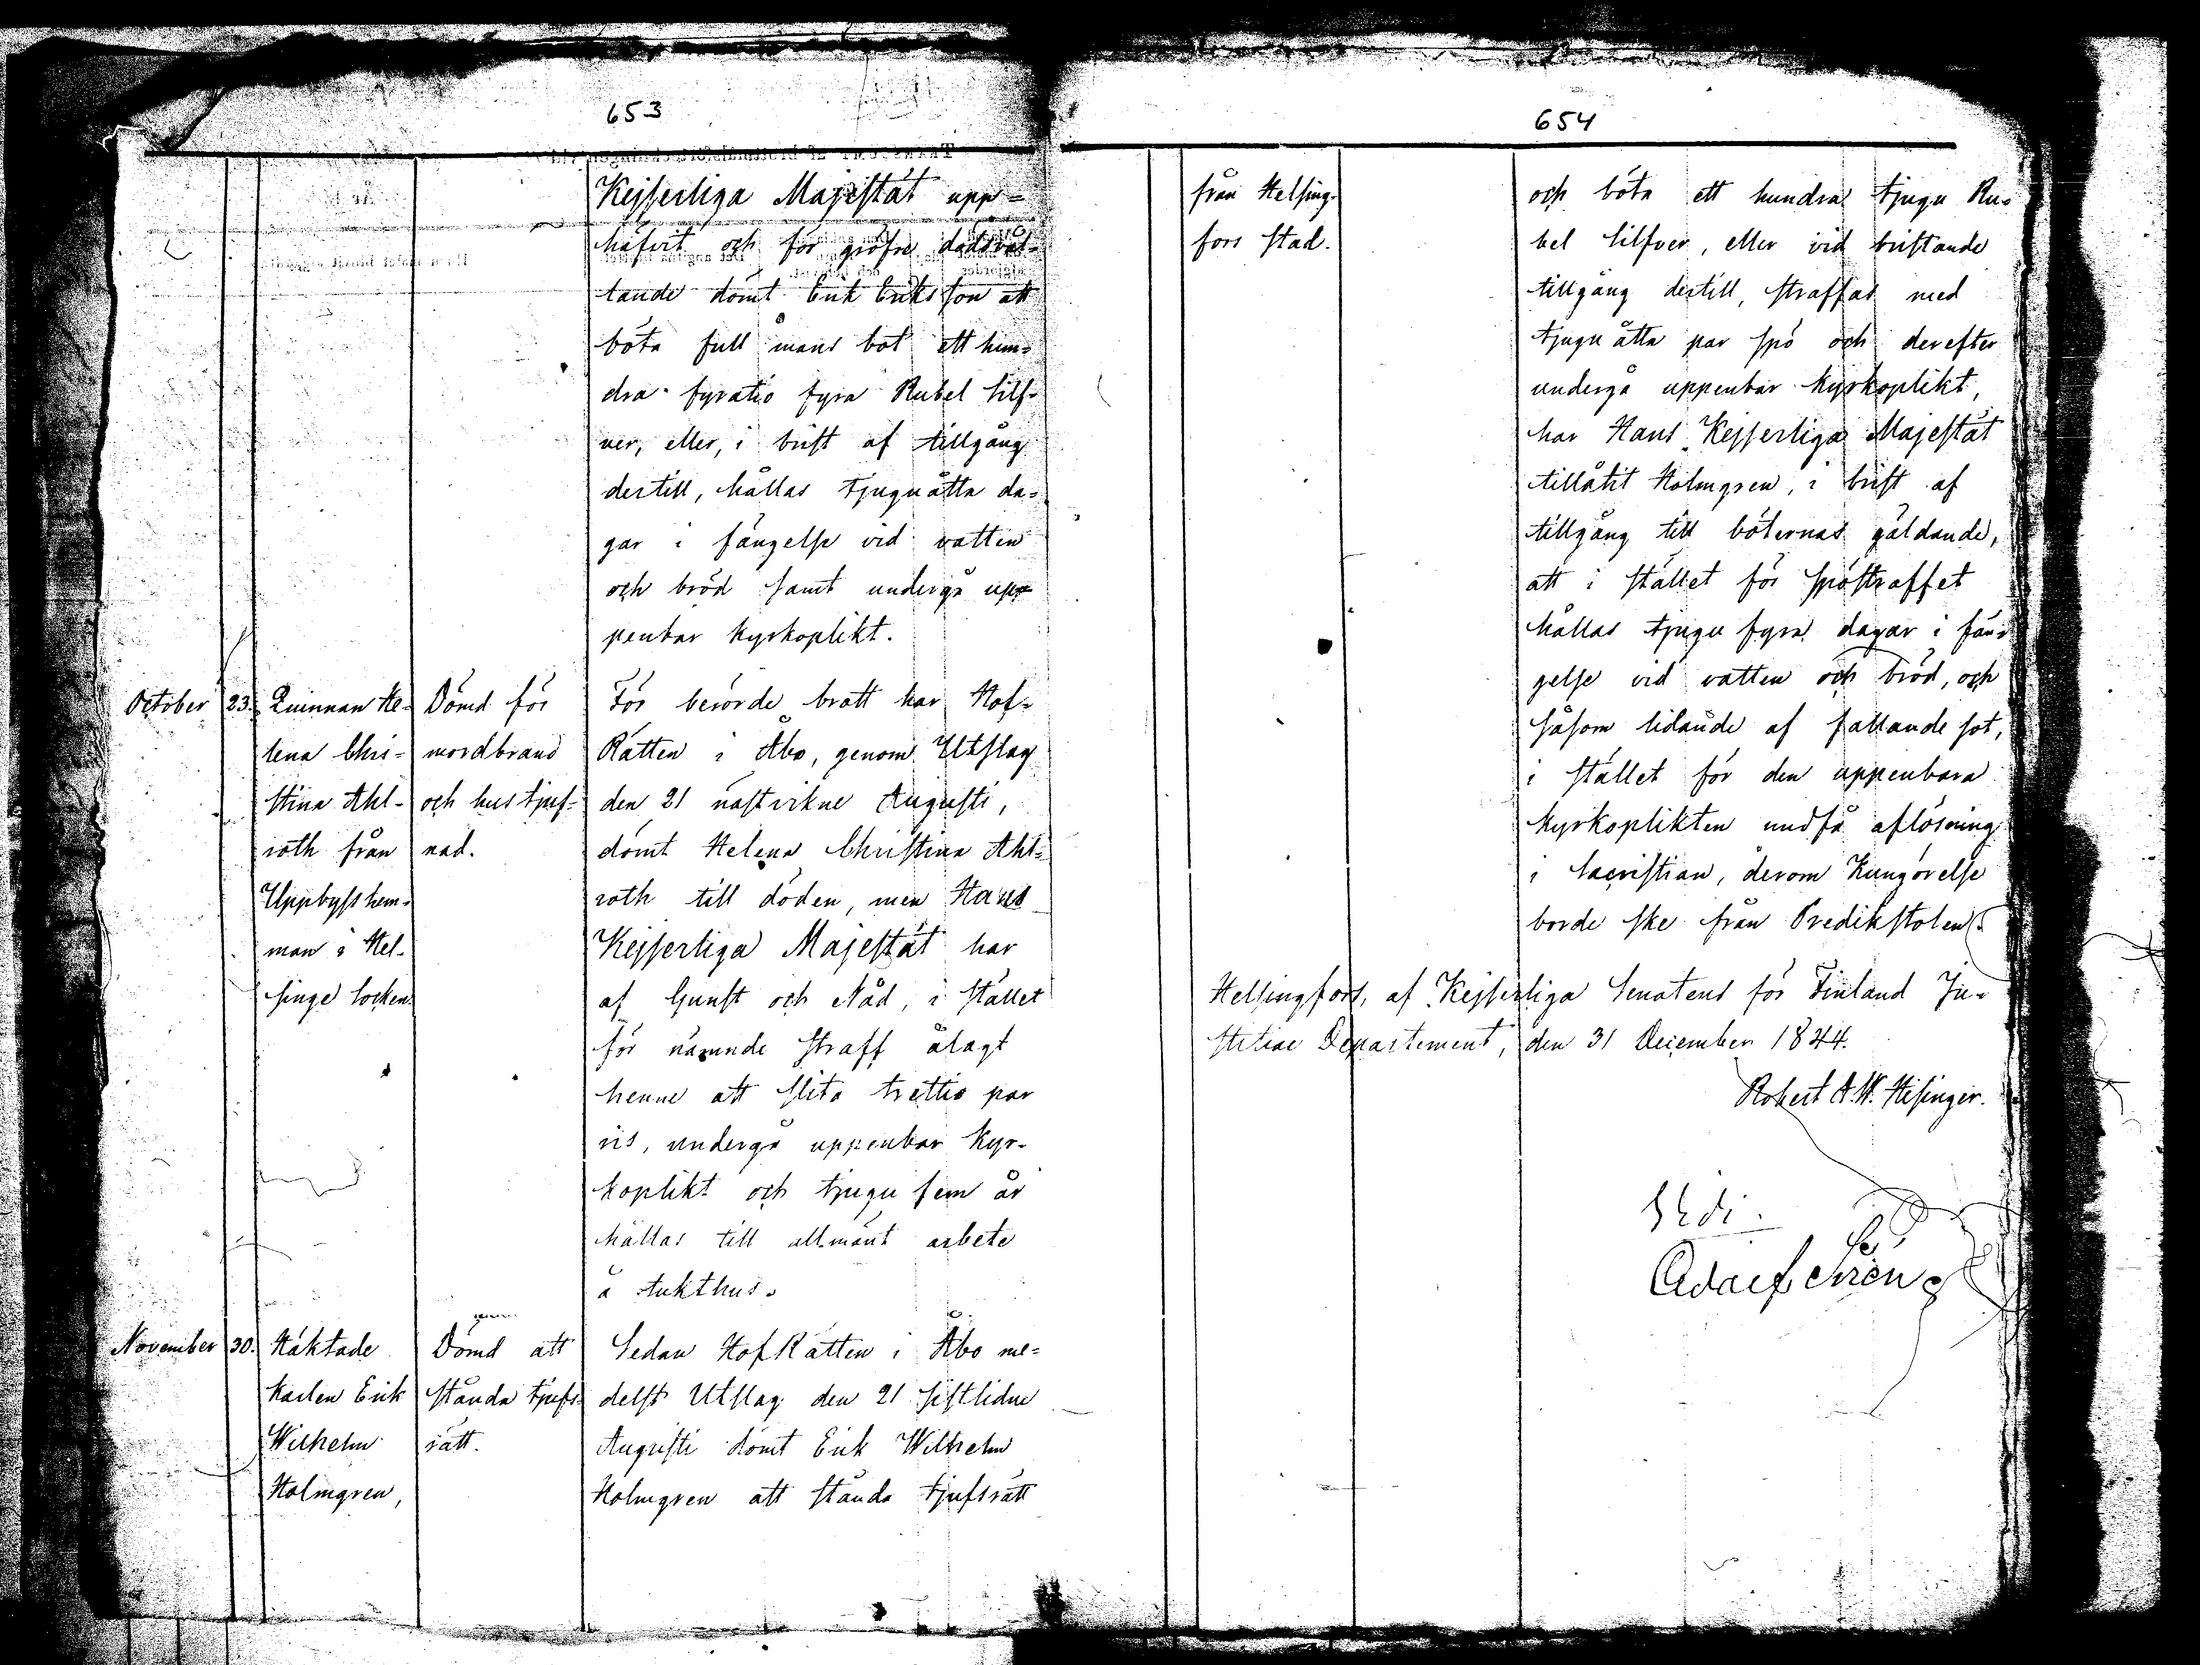 653
Kejserliga Majestät upp=
häfvit och för gröfre dådsvål-
lande dömt Erik Eriksson att
böta full mans bot ett hun-
dra fyratio fyra Rubel Silf-
ver, eller, i brist af tillgång
dertill, hållas tjuguåtta da-
gar i fängelse vid vatten
och bröd samt undergå up-
penbar kyrkoplikt.
October 23. Quinnan He-
lena Chri-
stina Ahl-
roth från
Uppbyss hem-
man i Hel-
singe Socken.
Dömd för
mordbrand
och hustjuf-
nad.
För berörde brott har Hof-
Rätten i Åbo, genom Utslag
den 21 nästvikne Augusti,
dömt Helena Christina Ahl-
roth till döden, men Hans
Kejserliga Majestät har
af Gunst och Nåd, i stället
för nämnde straff ålagt
henne att slita trettio par
ris, undergå uppenbar Kyr-
koplikt och tjugu fem år
hållas till allmänt arbete
å tukthus.
November 30. Häktade
karlen Erik
Wilhelm
Holmgren,
Dömd att
stånda tjufs-
rätt.
Sedan HofRätten i Åbo me-
delst Utslag den 21 sistlidne
Augusti dömt Erik Wilhelm
Holmgren att stånda tjufsrätt
654
från Helsing-
fors stad.
och böta ett hundra tjugu Ru-
bel Silfver, eller vid bristande
tillgång dertill, straffas med
tjugu åtta par spö och derefter
undergå uppenbar Kyrkoplikt,
har Hans Kejserliga Majestät
tillåtit Holmgren, i brist af
tillgång till böternas gäldande,
att i stället för spöstraffet
hållas tjugu fyra dagar i fän-
gelse vid vatten och bröd, och
såsom lidande af fallande sot,
i stället för den uppenbara
kyrkoplikten undfå aflösning
i Sacristian, derom Kungörelse
borde ske från Predikstolen.
Helsingfors, af Kejserliga Senatens för Finland Ju-
stitiae Departement, den 31 December 1844.
Robert A. W. Hisinger.